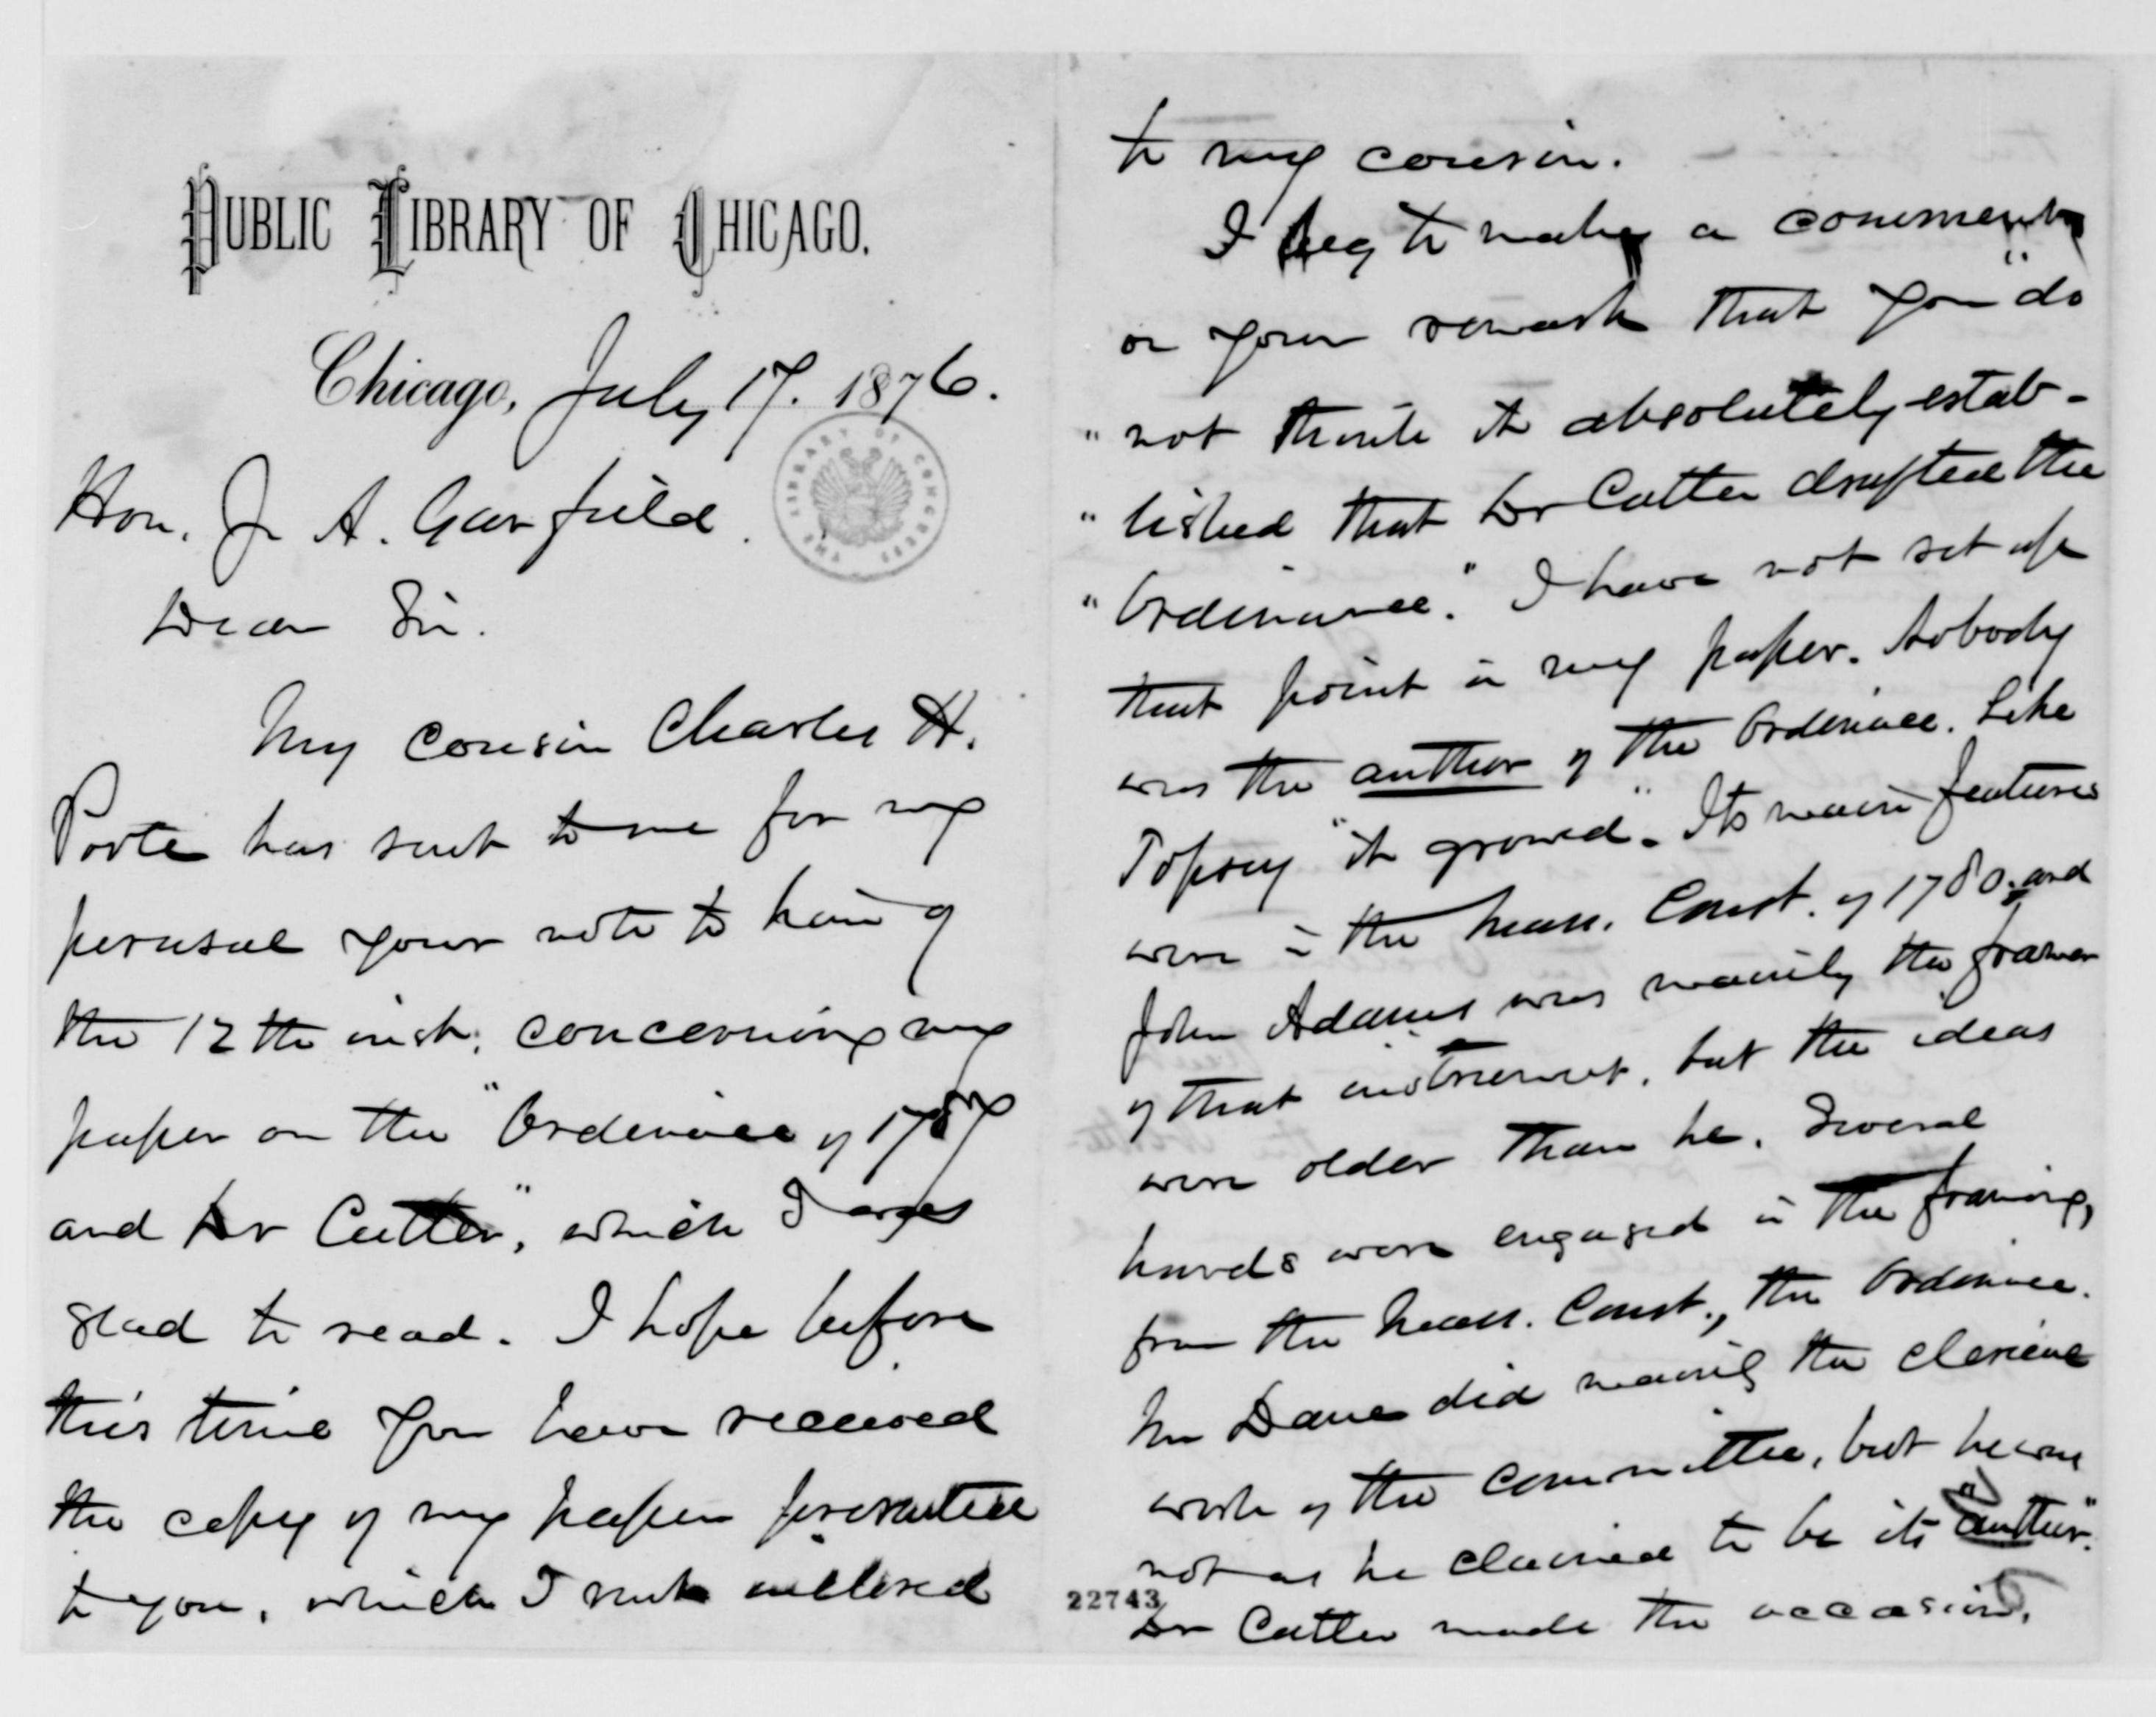 PUBLIC LIBRARY OF CHICAGO.
Chicago, July 17. 1876.
THE LIBRARY OF CONGRESS
Hon. J. A. Garfield.
Dear Sir.
My cousin Charles H.
Poole has sent to me for my
perusal your note to him of
the 12th inst. concerning my
paper on the "Ordinance of 1787
and Dr Cutler", which I am
glad to read. I hope before
this time you have received
the copy of my paper
to you, which I sent enclosed
to my cousin.
I beg to make a comment
on your remark that you "do
"not think it absolutely estab-
"lished that Dr Cutler drafted the
"Ordinance." I have not set up
that point in my paper. Nobody
was the author of the Ordinance. Like
Topsey "it growed". Its main features
were in the Mass. Const. of 1780, and
John Adams was mainly the framer
of that instrument, but the ideas
were older than he. Several
hands were engaged in the framing,
from the Mass. Const., the Ordinance.
Mr Dane did mainly the clerical
work of the committee, but he was
not as he claimed to be its "author".
22743
Dr Cutler made the occasion,